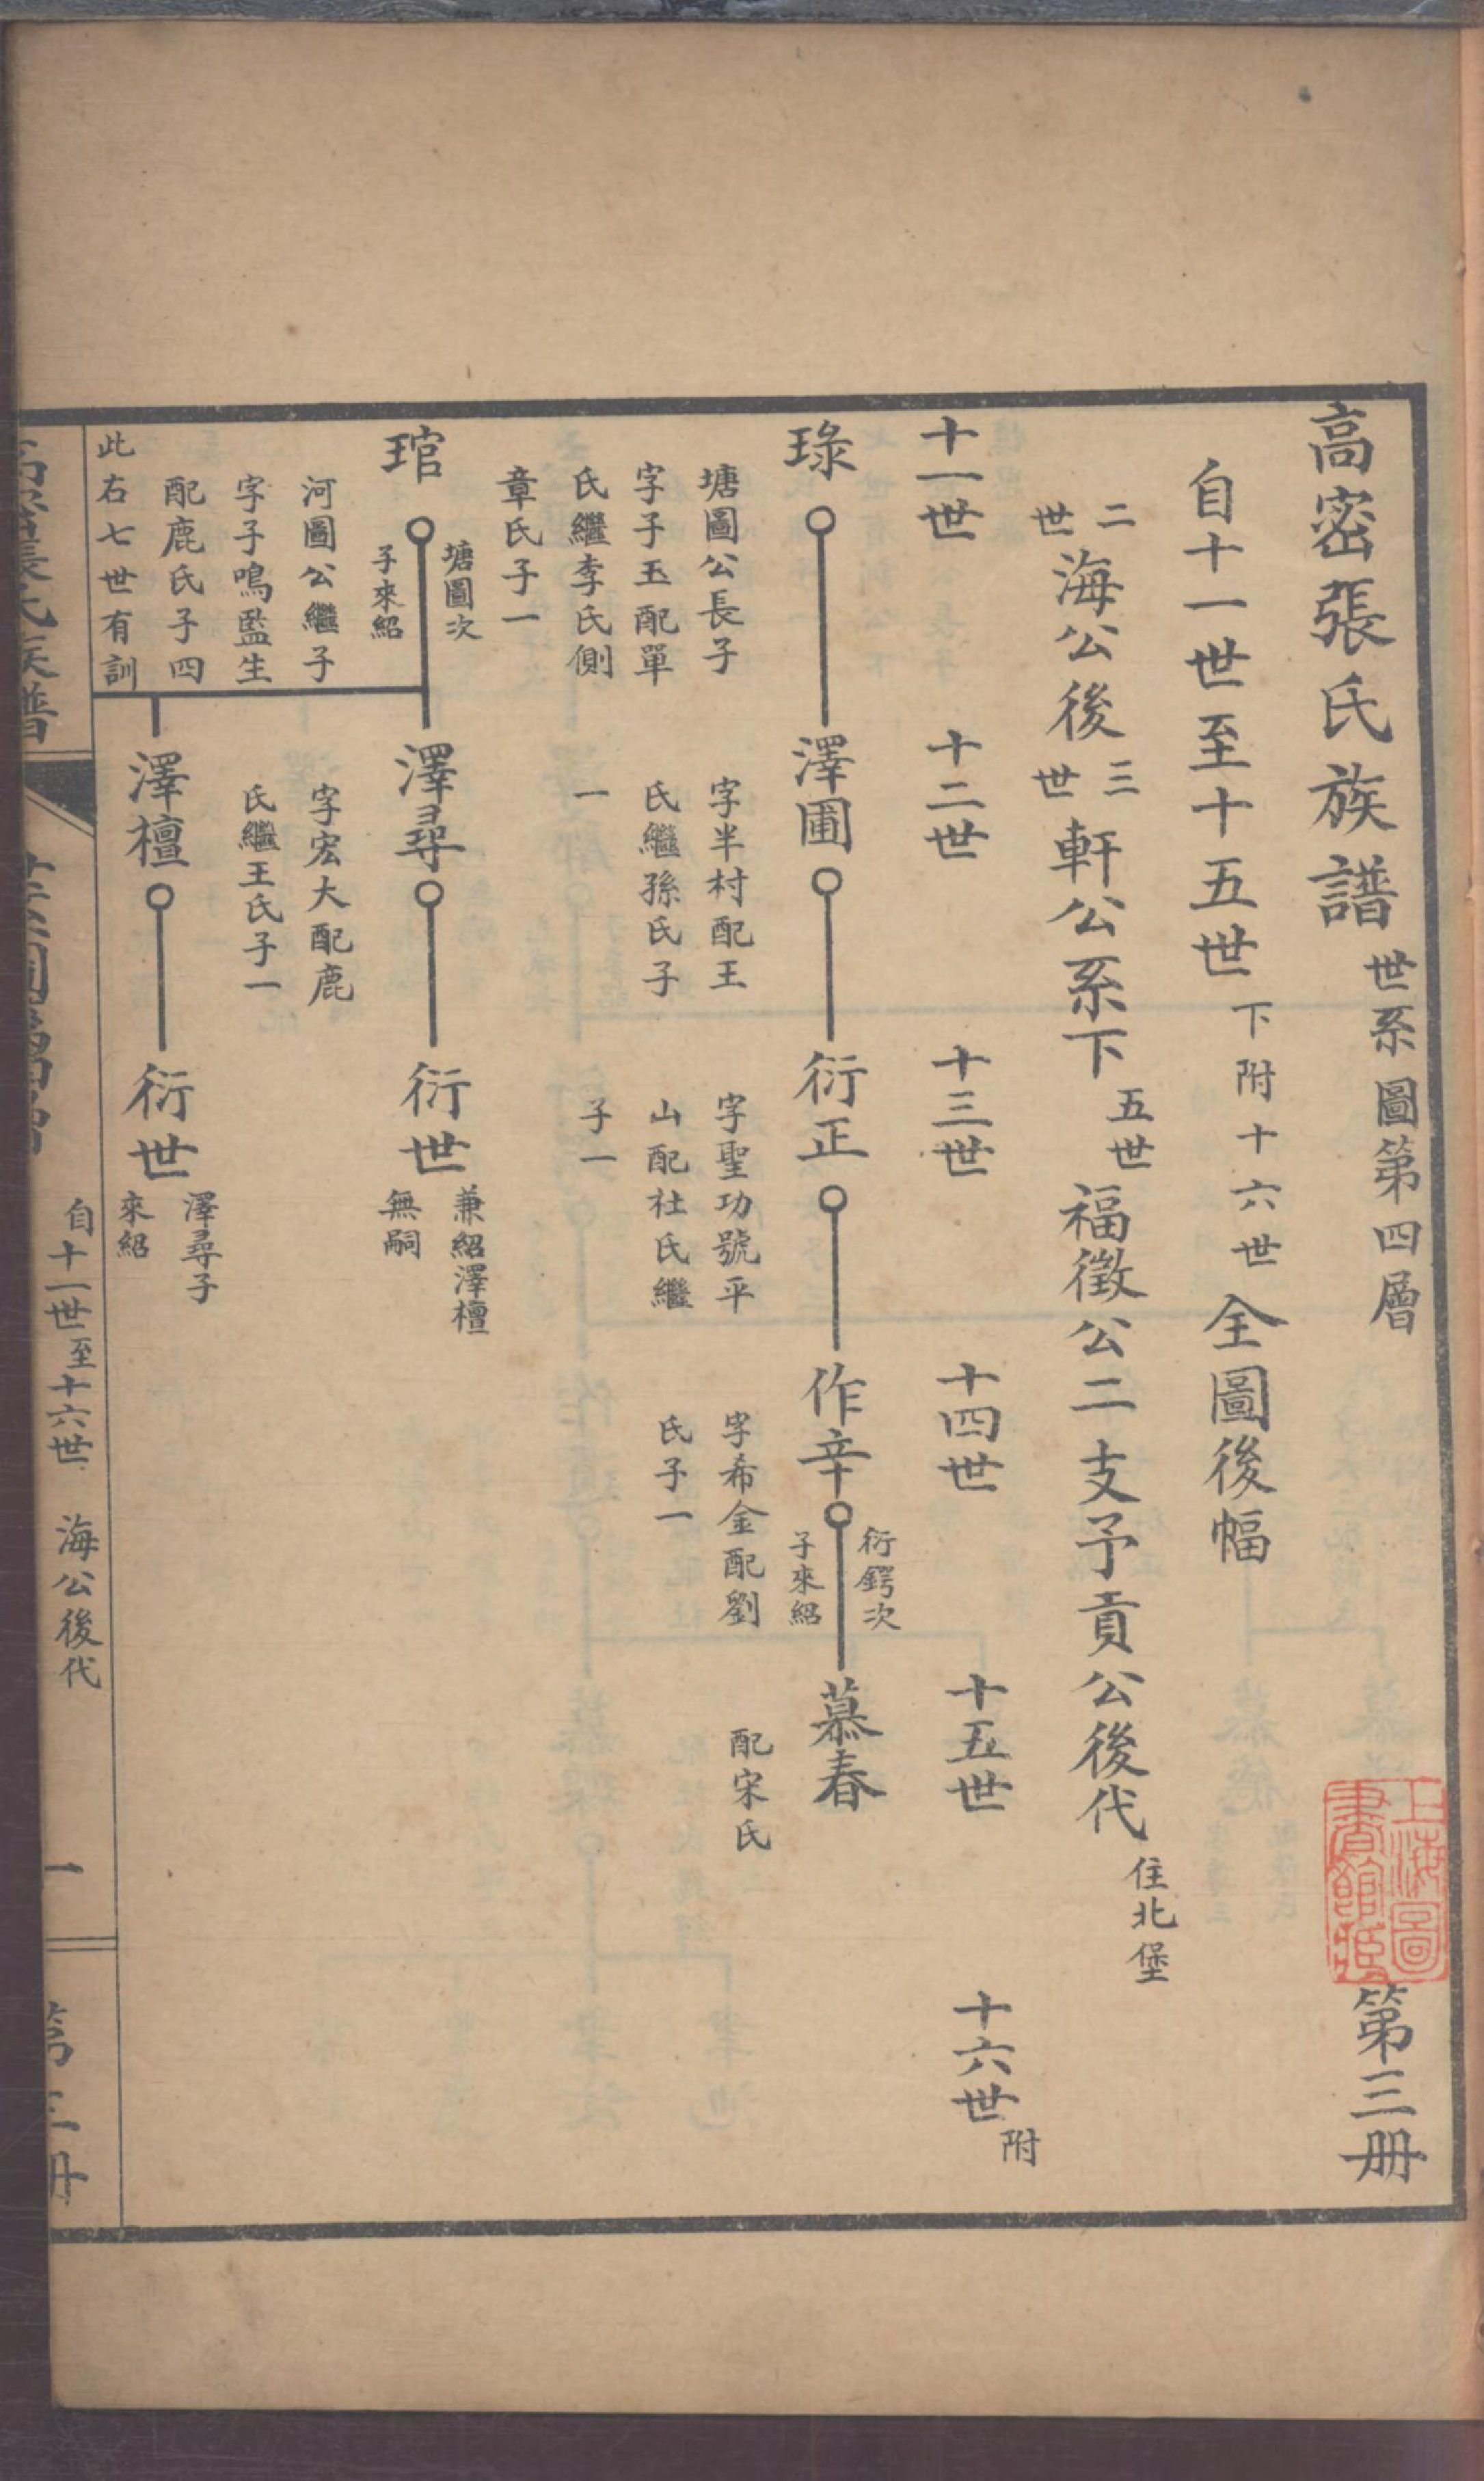 高密張氏族譜 世系圖第四層 第三册
上海圖書館藏
自十一世至十五世 下附十六世 全圖後幅
二世 海公後 三世 軒公系下 五世 福徵公二支予貢公後代 住北堡
十一世 十二世 十三世 十四世 十五世 十六世 附
琭 澤圃 衍正 作辛 衍鍔次子來紹 慕春
塘圖公長子 字半村配王 字聖功號平 字希金配劉 配宋氏
字子玉配單 氏繼孫氏子 山配社氏繼 氏子一
氏繼李氏側 一 子一
章氏子一
琯 塘圖次子來紹 澤尋 衍世 兼紹澤檀無嗣
河圖公繼子 字宏大配鹿
字子鳴監生 氏繼王氏子一
配鹿氏子四 澤檀 衍世 澤尋子來紹
此右七世有訓
自十一世至十六世 海公後代 一 第三册